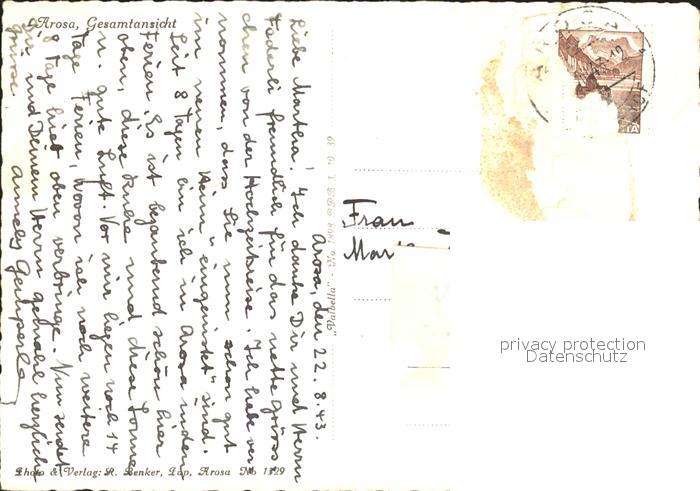 Arosa, Gesamtansicht
Arosa, den 22.8.43.
Liebe Martha! Ich danke Dir und Herrn
Federli freundlich für das nette Grüss
chen von der Hochzeitsreise. Ich habe ver
nommen, dass Sie nun schon gut
im neuen Heim "eingenistet" sind.
Seit 8 Tagen bin ich in Arosa in den
Ferien. Es ist bezaubernd schön hier
oben, diese Ruhe und diese Sonne
u. gute Luft. Vor mir liegen noch 14
Tage Ferien, wovon ich noch weitere
8 Tage hier oben verbringe. Nun seidet
Dir und Deinem Herrn Gemahl herzliche
Grüsse
Annely
Frau
Photo & Verlag: R. Benker, Pap, Arosa No 1129
privacy protection
Datenschutz